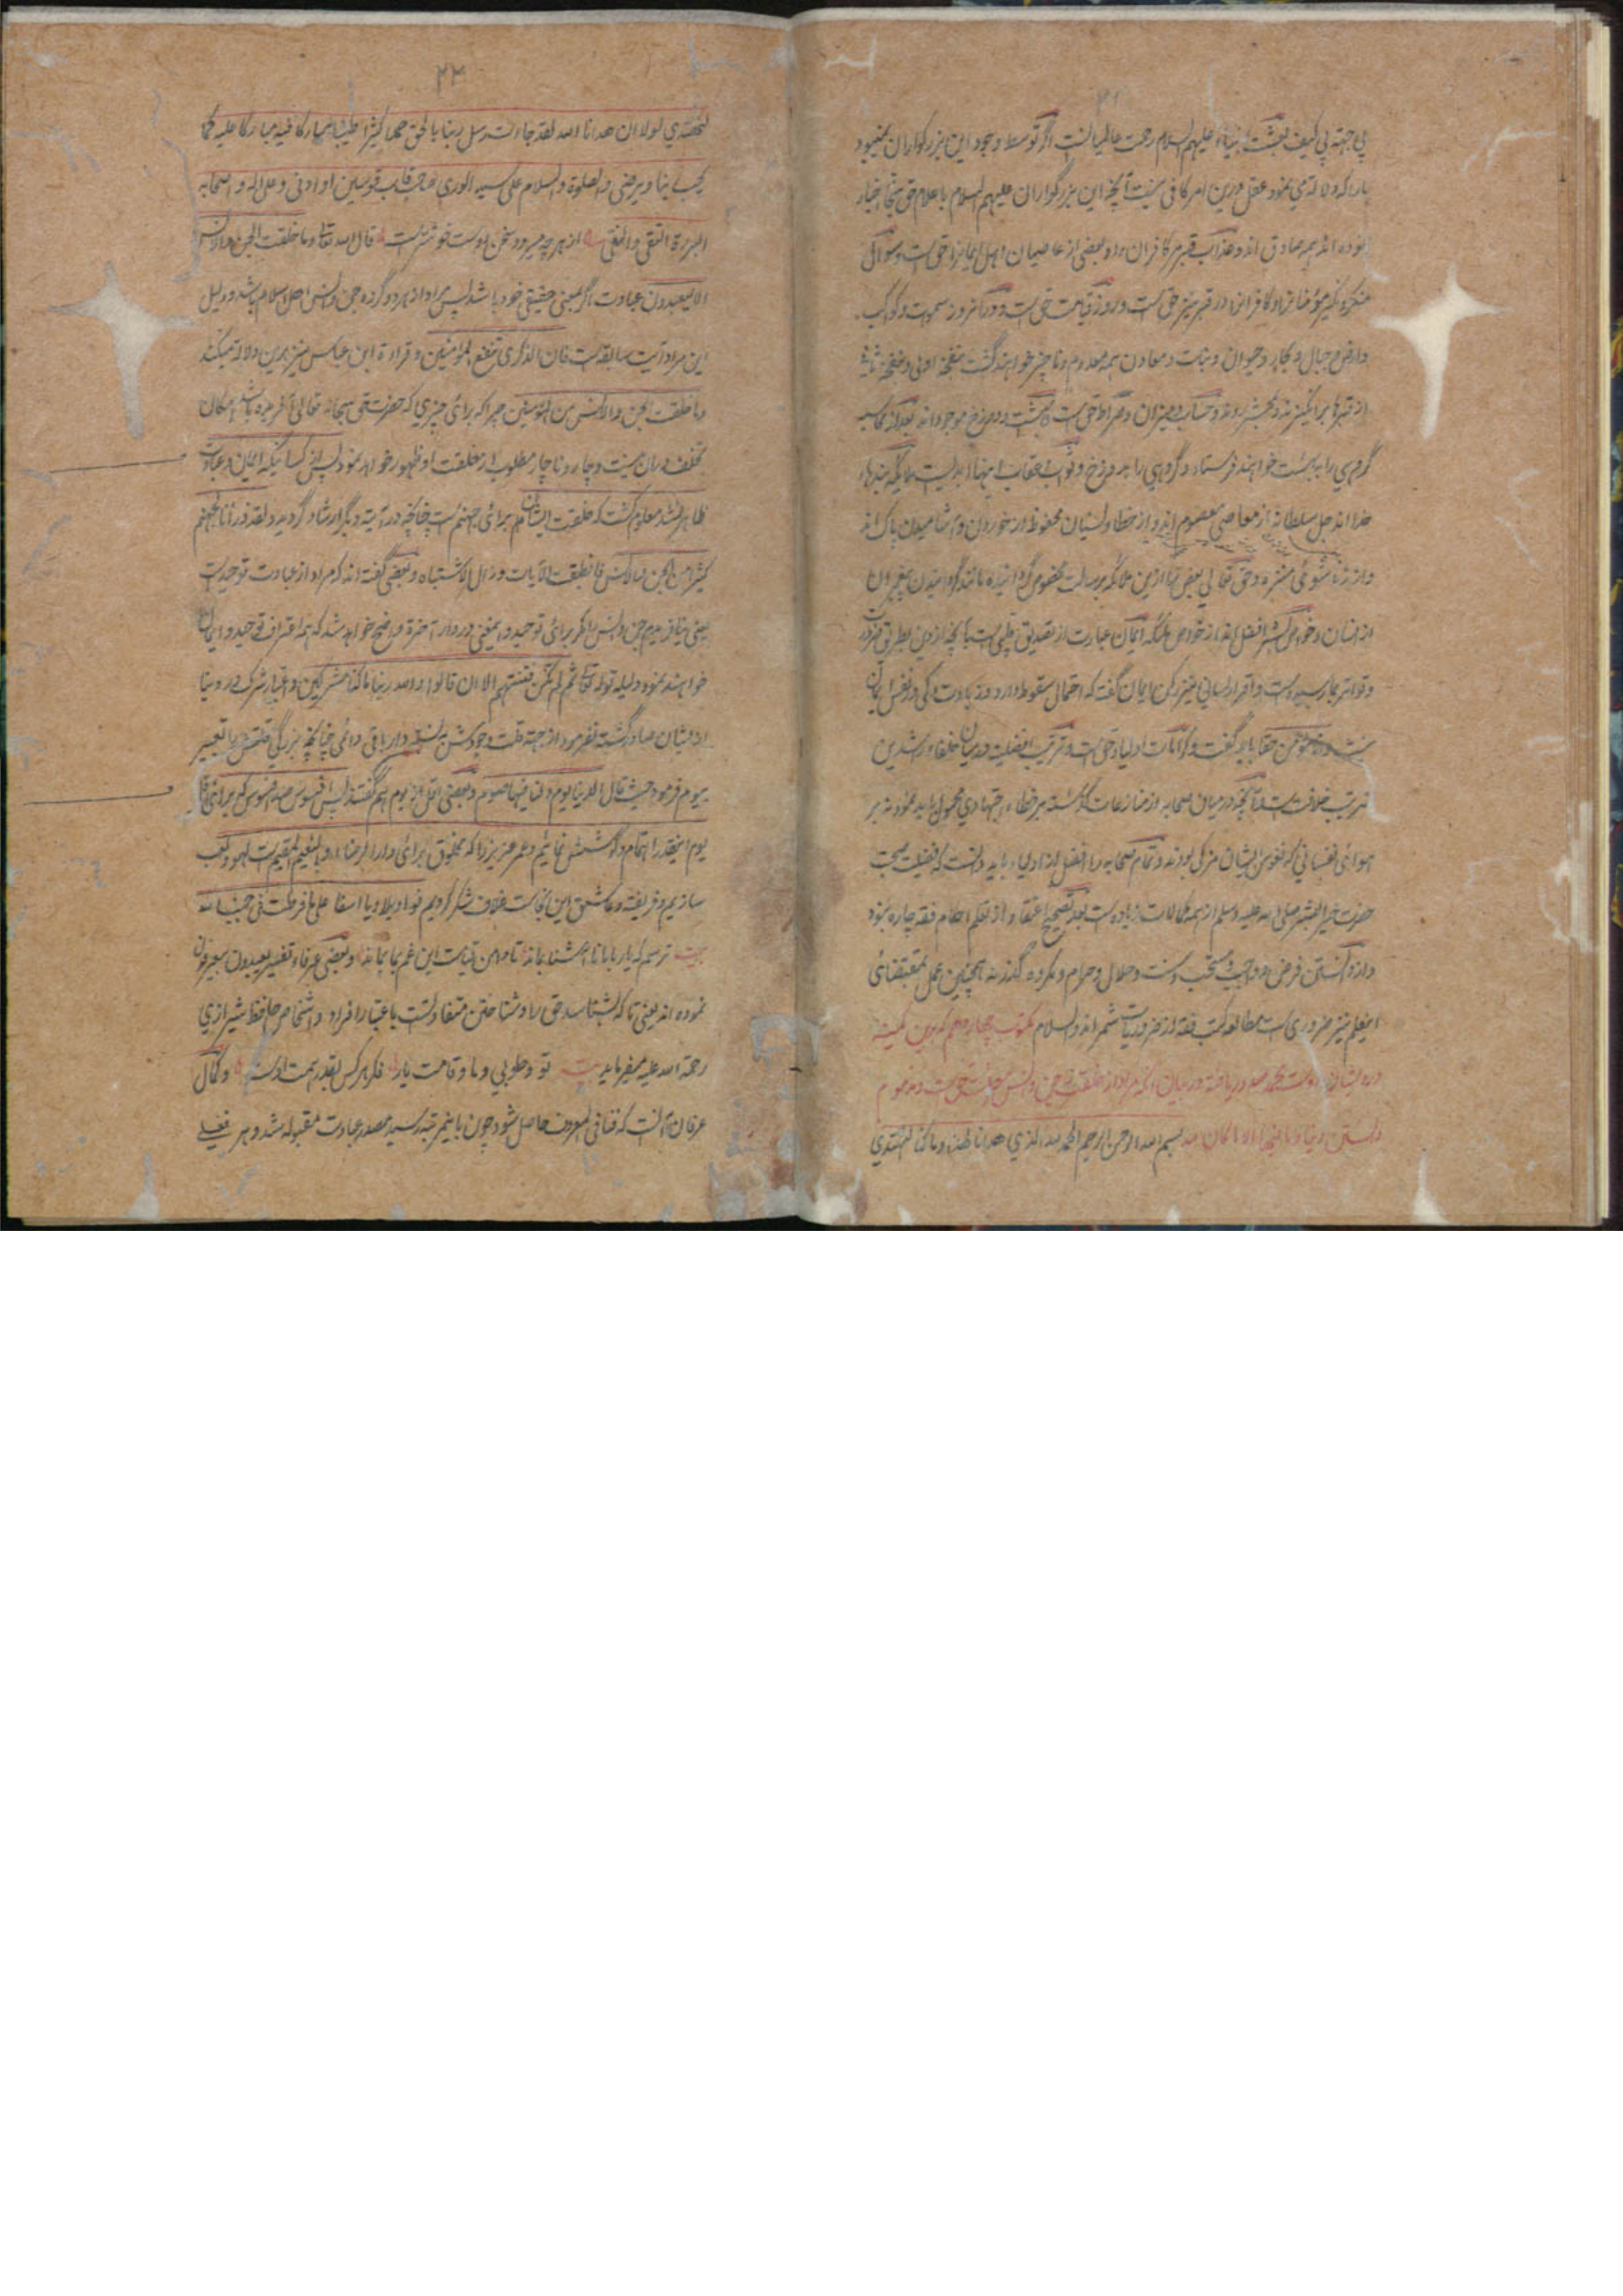 بی جهته بی کیف بعثت انبیاء علیهم السلام رحمت عالمیانست اگر توسط وجود این بزرگواران نمیبود
مارا که دلالتی نمود عقل درین امر کافی نیست آنچه این بزرگواران علیهم السلام باعلام حق بما اخبار
نموده اند همه صادق اند و عذاب قبر مر کافران را و بعضی از عاصیان اهل ایمانرا حق است و سوال
منکر و نکیر مؤمنانرا و کافرانرا در قبر نیز حق است و روز قیامت حق است و در آنروز سموات و کواکب
و ارض و جبال و بحار و حیوان و نبات و معادن همه معدوم و ناچیز خواهند گشت بنفخه اولی و بنفخه ثانیه
از قبرها برانگیزند و بحشر روند و حساب و میزان و صراط حق است و بهشت و دوزخ موجود اند بعد از محاسبه
گروهی را به بهشت خواهند فرستاد و گروهی را بدوزخ و ثواب و عقاب اینها ابدیست ملائکه بندهاء
خدا اند جل سلطانه از معاصی معصوم اند و از خطا و نسیان محفوظ از خوردن و آشامیدن پاک اند
و از زناشوئی منزه و حق تعالی بعض را ازین ملائکه برسالت مخصوص گردانیده مانند گردانیدن پیغمبران
از انسان و خواص بشر افضل اند از خواص ملائکه ایمان عبارت از تصدیق قلبی است بآنچه از دین بطریق ضرورت
و تواتر بما رسیده است و اقرار لسانی نیز رکن ایمان گفته که احتمال سقوط دارد و زیادت و کمی در نفس ایمان
نیست و انا مؤمن حقا باید گفت و کرامات اولیا حق است و ترتیب افضلیت در میان خلفاء راشدین
بترتیب خلافت است و آنچه در میان صحابه از منازعات گذشته بر خطاء اجتهادی محمول باید نمود نه بر
هوای نفسانی که نفوس ایشان مزکی بودند و تمام صحابه را افضل از اولیاء باید دانست که فضیلت صحبت
حضرت خیر البشر صلی الله علیه و سلم از همه کمالات زیاده است بعد تصحیح اعتقاد از تعلم احکام فقه چاره نبود
و از دانستن فرض و واجب و مستحب و سنت و حلال و حرام و مکروه گذر نه همچنین عمل بمقتضای
اینعلم نیز ضروری است مطالعه کتب فقه از ضروریات شمرند والسلام مکتوب چهاردهم که بدین کمینه
درویشان دوست محمد صدور یافته در بیان آنکه مراد از خلقت جن و انس چیست و مذموم
دانستن دنیا و ما فیها الا ما کان لله بسم الله الرحمن الرحیم الحمد لله الذی هدانا لهذا و ما کنا لنهتدی
۲۲
لنهتدی لولا ان هدانا الله لقد جاءت رسل ربنا بالحق حمدا کثیرا طیبا مبارکا فیه مبارکا علیه کما
یحب ربنا و یرضی و الصلوة و السلام علی سید الوری صاحب قاب قوسین او ادنی و علی آله و اصحابه
البررة التقی و النقی از هر چه میرود سخن دوست خوشترست قال الله تعالی و ما خلقت الجن و الانس
الا لیعبدون عبادت اگر بمعنی حقیقی خود باشد پس مراد از هر دو گروه جن و انس اهل اسلام باشد و دلیل
این مراد آیت سابقه است فان الذکری تنفع المؤمنین و قراءة ابن عباس نیز بدین دلالة میکند
و ما خلقت الجن و الانس من المؤمنین چرا که برای چیزی که حضرت حق سبحانه تعالی آفریده باشد امکان
تخلف در ان نیست و چار و ناچار مطلوب از خلقت او ظهور خواهد نمود پس از کسانیکه ایمان و عبادت
ظاهر نشد معلوم گشت که خلقت ایشان هم برای جهنم است چنانچه در آیته دیگر ارشاد گردید و لقد ذرأنا لجهنم
کثیرا من الجن و الانس فانطبقت الآیات و زال الاشتباه و بعضی گفته اند که مراد از عبادت توحید است
یعنی نیافریدم جن و انس را مگر برای توحید و اینمعنی در دار آخرة واضح خواهد شد که همه اعتراف توحید و ایمان
خواهند نمود و دلیله قوله تعالی ثم لم تکن فتنتهم الا ان قالوا و الله ربنا ما کنا مشرکین و اعتبار شرک در دنیا
از ایشان صادر گشته نفرمود از جهة قلت وجودش به نسبت دار باقی دائمی چنانچه بزرگی قلتش را تعبیر
بیوم فرمود حیث قال الدنیا یوم و لنا فیها صوم و بعضی اقل از یوم هم گفتند پس افسوس صد افسوس که برای بقا
یوم اینقدر اهتمام و کوشش نمائیم و عمر عزیز را که مخلوق برای دار الرضاء و النعیم المقیم است لهو و لعب
سازیم و فریفته و عاشق این نجاست غلاف شکر گردیم فوا ویلا و یا اسفا علی ما فرطت فی جنب الله
بیت ترسم که یار با ما ناآشنا بماند تا دامن قیامت این غم بما بماند و بعضی عرفاء تفسیر لیعبدون بیعرفون
نموده اند یعنی تا که بشناسند حق را و شناختن متفاوتست باعتبار افراد و اشخاص حافظ شیرازی
رحمة الله علیه میفرماید بیت تو و طوبی و ما و قامت یار فکر هر کس بقدر همت اوست و کمال
عرفان آنست که فنا فی المعروف حاصل شود چون باینمرتبه رسید مصدر عبادت مقبوله شد و هر فعلی